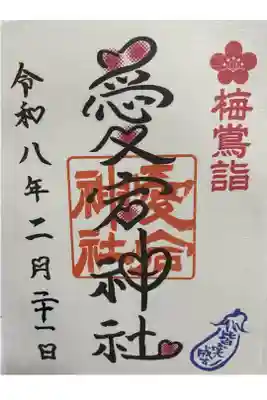 梅鶯詣
愛宕神社
愛宕
神社
令和八年二月二十一日